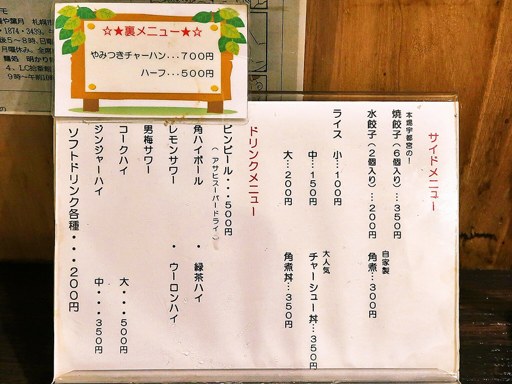 ☆★裏メニュー★☆
やみつきチャーハン…７００円
ハーフ…５００円
サイドメニュー
本場宇都宮の！
焼餃子（６個入り）…３５０円
水餃子（２個入り）…２００円
自家製
角煮…３００円
ライス 小…１００円
中…１５０円
大…２００円
大人気
チャーシュー丼…３５０円
角煮丼…３５０円
ドリンクメニュー
ビンビール・・・５００円
（アサヒスーパードライ）
角ハイボール
・緑茶ハイ
レモンサワー
・ウーロンハイ
男梅サワー
コークハイ
大・・・５００円
ジンジャーハイ
中・・・３５０円
ソフトドリンク各種・・・２００円